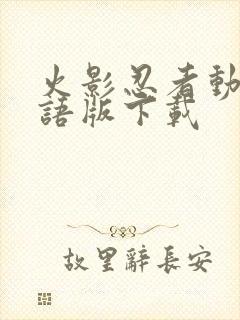 火影忍者動
語版下載
故里辭長安